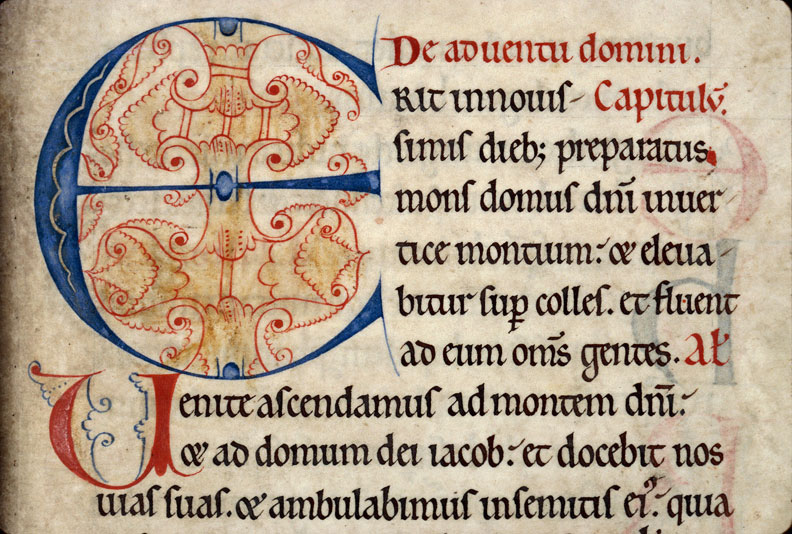 De aduentu domini.
ERIT innouis- Capitulū.
simis dieb; preparatus
mons domus dn̄i inuer-
tice montium: & eleua-
bitur sup̱ colles. et fluent
ad eum om̄s gentes. Al̵
Venite ascendamus ad montem dn̄i:
& ad domum dei iacob: et docebit nos
uias suas. & ambulabimus insemitis eiꝰ: quia